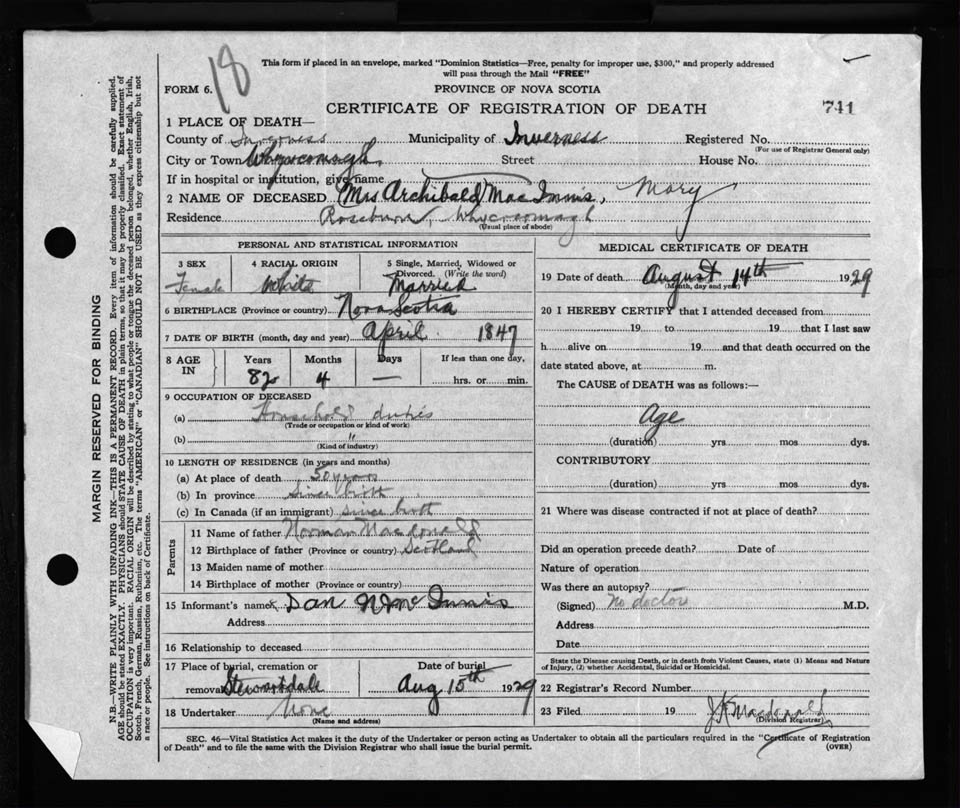 18
This form if placed in an envelope, marked "Dominion Statistics—Free, penalty for improper use, $300," and properly addressed
will pass through the Mail "FREE"
FORM 6.
PROVINCE OF NOVA SCOTIA
CERTIFICATE OF REGISTRATION OF DEATH
741
1 PLACE OF DEATH—
County of Inverness Municipality of Inverness Registered No.
(For use of Registrar General only)
City or Town Whycocomagh Street House No.
If in hospital or institution, give name
2 NAME OF DECEASED (Mrs Archibald) MacInnis, Mary
Residence Roseburn, Whycocomagh
(Usual place of abode)
PERSONAL AND STATISTICAL INFORMATION
3 SEX
Female
4 RACIAL ORIGIN
White
5 Single, Married, Widowed or
Divorced. (Write the word)
Married
6 BIRTHPLACE (Province or country) Nova Scotia
7 DATE OF BIRTH (month, day and year) April 1847
8 AGE IN
Years Months Days If less than one day,
82 4 — hrs. or min.
9 OCCUPATION OF DECEASED
(a) Household duties
(Trade or occupation or kind of work)
(b) "
(Kind of industry)
10 LENGTH OF RESIDENCE (in years and months)
(a) At place of death 50 years
(b) In province since birth
(c) In Canada (if an immigrant) since birth
Parents
11 Name of father Norman Macdonald
12 Birthplace of father (Province or country) Scotland
13 Maiden name of mother
14 Birthplace of mother (Province or country)
15 Informant's name Dan N McInnis
Address
16 Relationship to deceased
17 Place of burial, cremation or
removal Stewartdale
Date of burial
Aug 15th 1929
18 Undertaker None
(Name and address)
MEDICAL CERTIFICATE OF DEATH
19 Date of death August 14th 1929
(Month, day and year)
20 I HEREBY CERTIFY that I attended deceased from
19 to 19 that I last saw
h alive on 19 and that death occurred on the
date stated above, at m.
The CAUSE of DEATH was as follows:—
Age
(duration) yrs mos dys.
CONTRIBUTORY
(duration) yrs mos dys.
21 Where was disease contracted if not at place of death?
Did an operation precede death? Date of
Nature of operation
Was there an autopsy?
(Signed) No doctor M.D.
Address
Date
State the Disease causing Death, or in death from Violent Causes, state (1) Means and Nature
of Injury, (2) whether Accidental, Suicidal or Homicidal.
22 Registrar's Record Number
23 Filed 19 Macdonald
(Division Registrar)
SEC. 46—Vital Statistics Act makes it the duty of the Undertaker or person acting as Undertaker to obtain all the particulars required in the "Certificate of Registration
of Death" and to file the same with the Division Registrar who shall issue the burial permit.
(OVER)
MARGIN RESERVED FOR BINDING
N.B.—WRITE PLAINLY WITH UNFADING INK—THIS IS A PERMANENT RECORD. Every item of information should be carefully supplied.
AGE should be stated EXACTLY. PHYSICIANS should STATE CAUSE OF DEATH in plain terms, so that it may be properly classified. Exact statement of
OCCUPATION is very important. RACIAL ORIGIN will be described by stating to what people or tongue the deceased person belonged, whether English, Irish,
Scotch, French, German, Russian, Ruthenian, etc. The terms "AMERICAN" or "CANADIAN" SHOULD NOT BE USED as they express citizenship but not
a race or people. See instructions on back of Certificate.